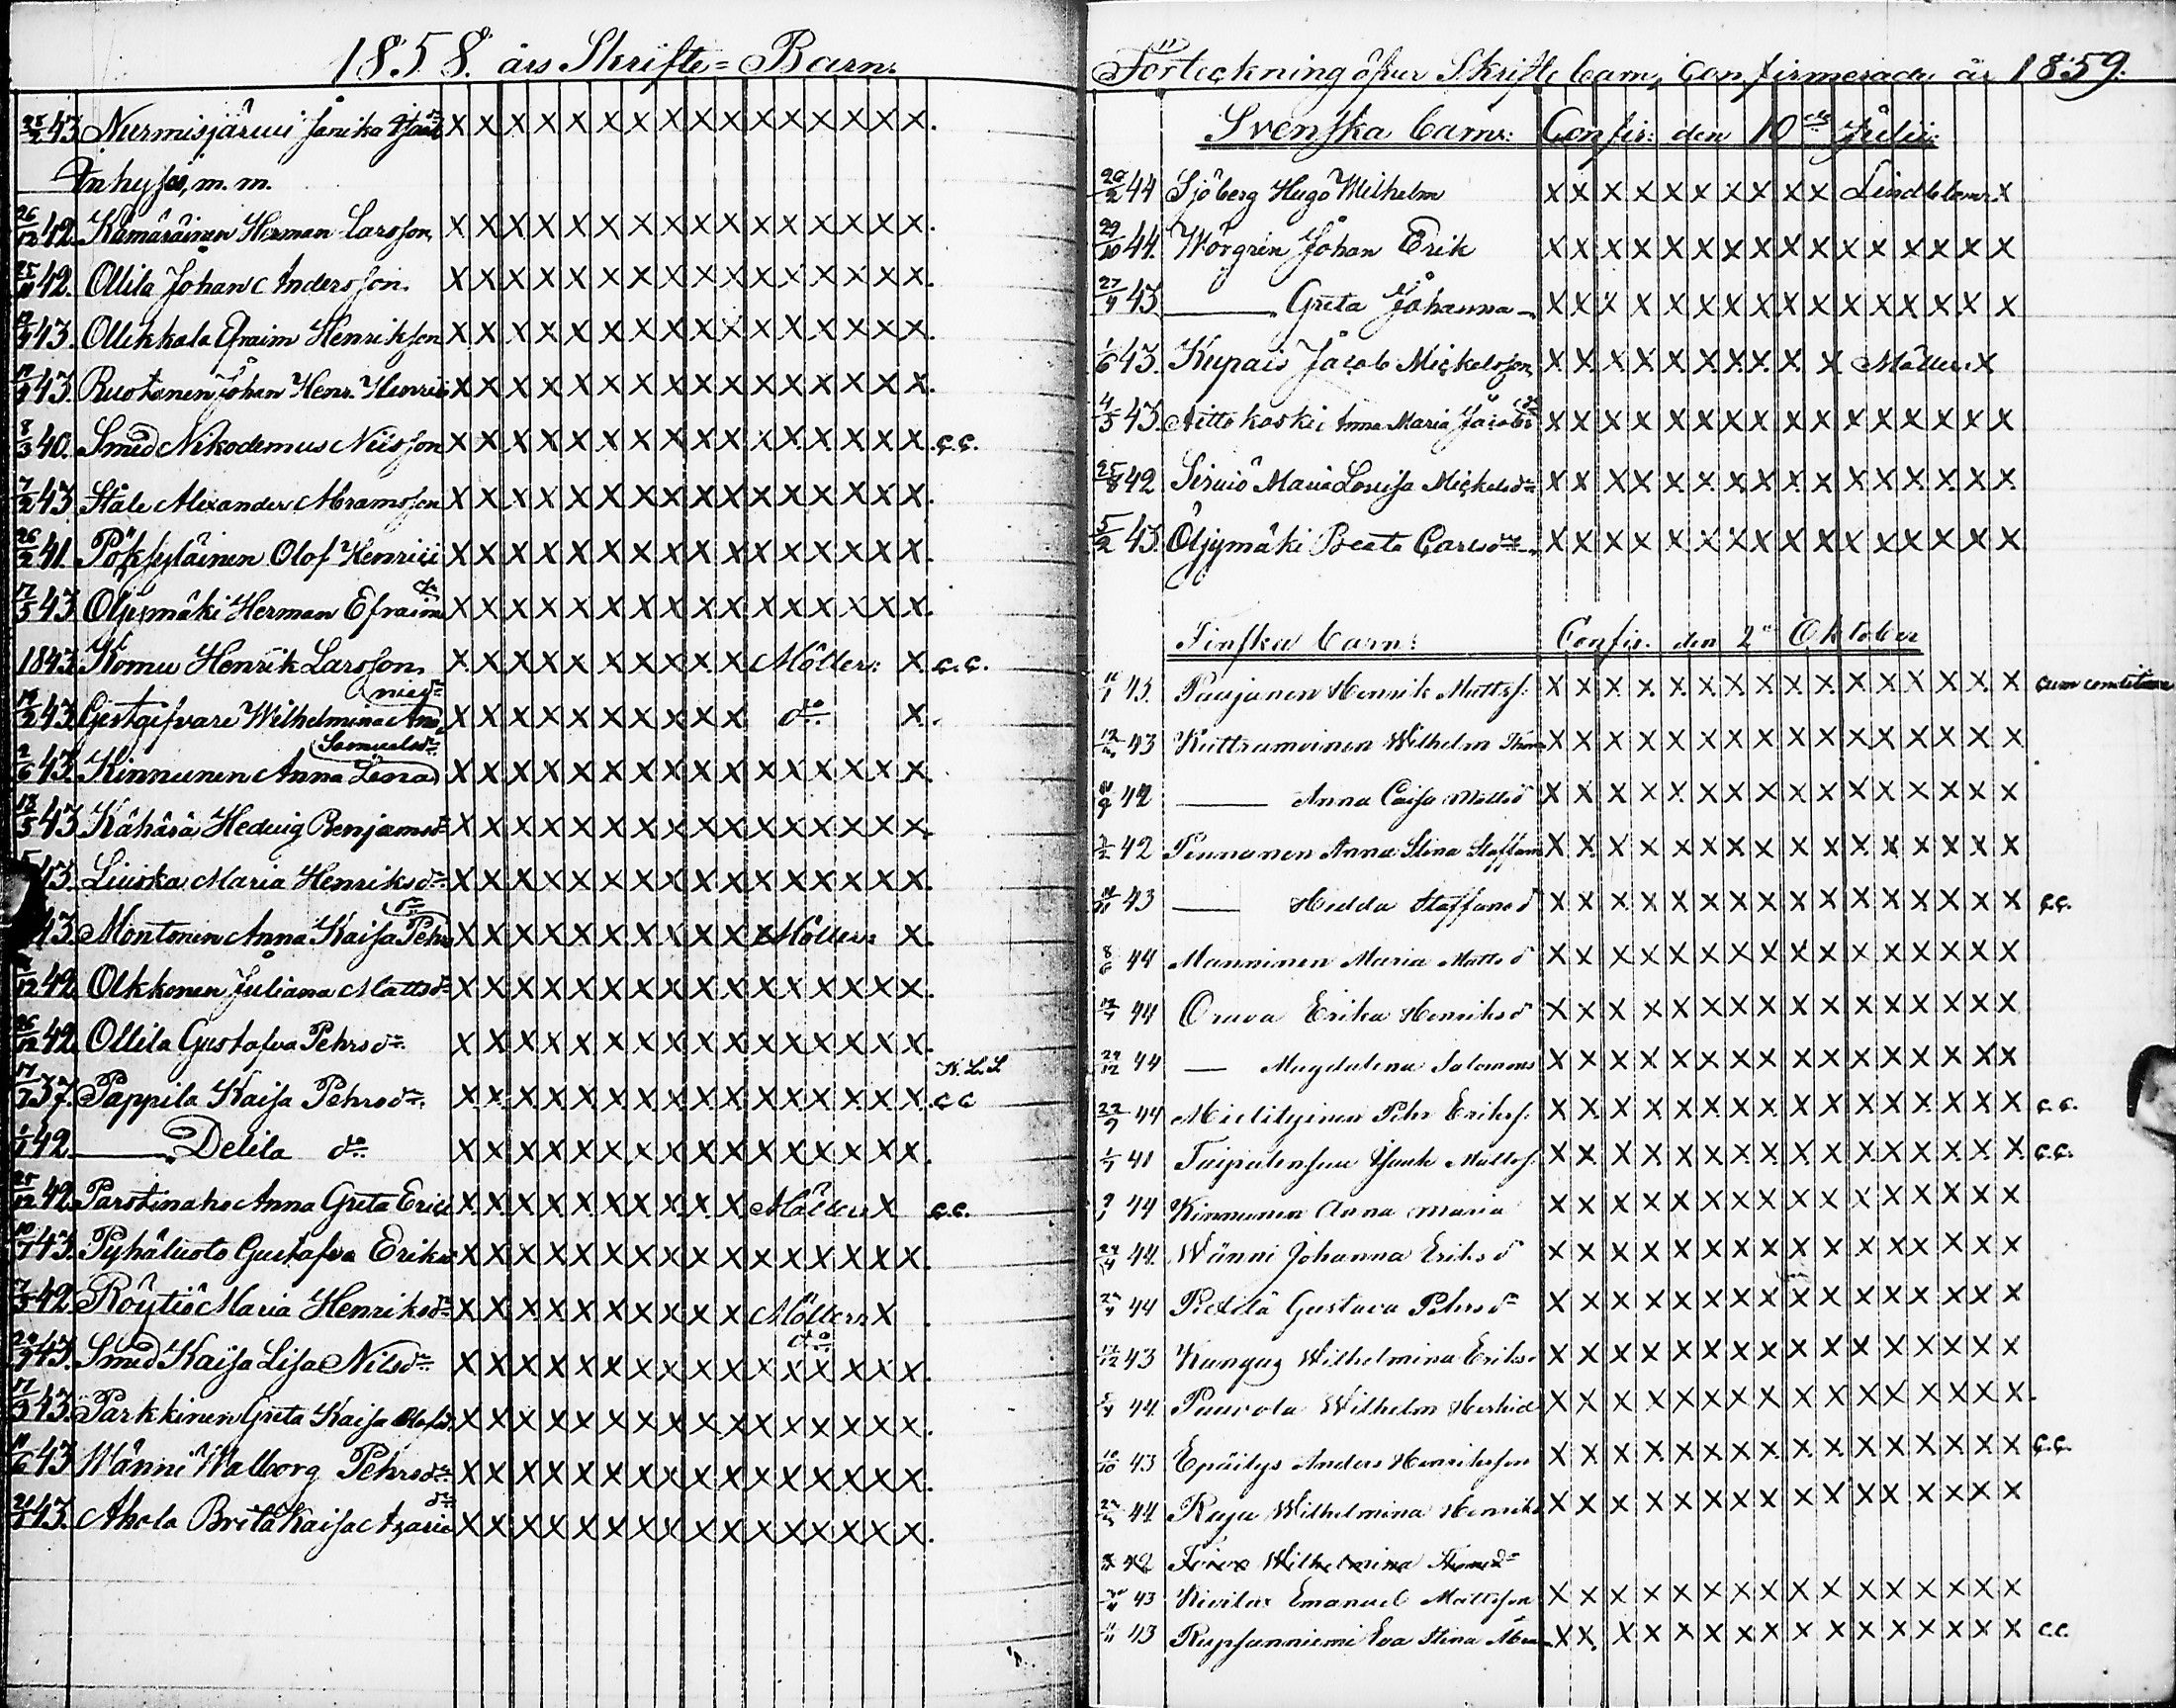 1858. års Skrifte=Barn.
28/2 43. Nurmisjärvi Janika Isaaks dr X X X X X X X X X X X X X X X.
Inhyses, m. m.
26/12 42. Kämäräinen Herman Larsson X X X X X X X X X X X X X X X.
25/11 42. Ollila Johan Andersson. X X X X X X X X X X X X X X X.
43. Ollikkala Efraim Henriksson X X X X X X X X X X X X X X X.
43. Ruotanen Johan Henr. Henrici X X X X X X X X X X X X X X X.
8/3 40. Smed Nikodemus Nilsson X X X X X X X X X X X X X X X. c.c.
7/2 43. Ståle Alexander Abramsson X X X X X X X X X X X X X X X.
26/2 41. Pöksyläinen Olof Henrici X X X X X X X X X X X X X X X.
17/5 43. Öljymäki Herman Efraim X X X X X X X X X X X X X X X.
1843. Komu Henrik Larsson X X X X X X X X X X Möllers: X c.c.
43. Gestgifvare Wilhelmina X X X X X X X X X X do X.
Samuelsdr
2/6 43. Kinnunen Anna Lena X X X X X X X X X X X X X X X.
13/5 43 Kähärä Hedvig Benjamsdr X X X X X X X X X X X X X X X.
43. Liuska Maria Henriksdr. X X X X X X X X X X X X X X X.
43. Montonen Anna Kaisa Pehrs dr X X X X X X X X X X Möllers X.
12 42. Olkkonen Juliana Mattsdr X X X X X X X X X X X X X X X.
26/12 42. Ollila Gustafva Pehrsdr. X X X X X X X X X X X X X X X.
N. L. L
37. Pappila Kaisa Pehrsdr. X X X X X X X X X X X X X X X. c c
42 —— Delila do X X X X X X X X X X X X X X X.
25/12 42. Parstinaho Anna Greta Erics X X X X X X X X X X Möllers X c.c.
10/7 43. Pyhäluoto Gustafva Eriks X X X X X X X X X X X X X X X.
42. Röytiö Maria Henriksdr X X X X X X X X X X Möllers X .
do
43. Smed Kaisa Lisa Nilsdr X X X X X X X X X X X X X X X.
17/3 43. Parkkinen Greta Kaisa Olofsd. X X X X X X X X X X X X X X X.
43 Wänni Walborg Pehrsdr X X X X X X X X X X X X X X X.
43. Ahola Brita Kaisa Azarie dr X X X X X X X X X X X X X X X.
Förteckning öfver Skriftebarn, confirmerade år 1859.
Svenska barn: Confir: den 10de Julii:
20/2 44 Sjöberg Hugo Wilhelm X X X X X X X X X X Lindbloms X
29/10 44. Worgrén Johan Erik X X X X X X X X X X X X X X X
27/4 43 —— Greta Johanna X X X X X X X X X X X X X X X
1/6 43. Kupais Jacob Mickelsson X X X X X X X X X X Möllers X
4/3 43. Aittokoski Anna Maria Jacobs dr X X X X X X X X X X X X X X X
25/8 42 Sirviö Maria Lovisa Mickelsdr X X X X X X X X X X X X X X X
5/2 43. Öljymäki Beata Carlsdr X X X X X X X X X X X X X X X
Finska barn: Confir. den 2a Oktober
43. Paajanen Henrik Mattss. X X X X X X X X X X X X X X X cum conditione
43 Kuttramoinen Wilhelm Thom X X X X X X X X X X X X X X X
42 —— Anna Caisa Mattsd X X X X X X X X X X X X X X X
42 Pennanen Anna Stina Staffans X X X X X X X X X X X X X X X
43 —— Hedda Staffansd X X X X X X X X X X X X X X X c.c.
8/6 44 Manninen Maria Mattsd X X X X X X X X X X X X X X X
44 Orava Erika Henriksd X X X X X X X X X X X X X X X
24/12 44 —— Magdalena Salomons X X X X X X X X X X X X X X X
44 Mielityinen Pehr Erikss. X X X X X X X X X X X X X X X c.c.
41 Taipalensuu Isaak Mattss. X X X X X X X X X X X X X X X c.c.
44 Kinnunen Anna Maria X X X X X X X X X X X X X X X
44. Wänni Johanna Eriksd X X X X X X X X X X X X X X X
44 Pietilä Gustava Pehrsdr X X X X X X X X X X X X X X X
43 Kangas Wilhelmina Eriks. X X X X X X X X X X X X X X X
44. Paavola Wilhelm X X X X X X X X X X X X X X X.
10/10 43 Epäilys Anders Henriksson X X X X X X X X X X X X X X X c.c.
44 Raja Wilhelmina Henriks X X X X X X X X X X X X X X X
42 Wilhelmina Thomsdr
43 Kivilax Emanuel Mattsson X X X X X X X X X X X X X X X
11/11 43 Rupsanniemi Eva Stina X X X X X X X X X X X X X X X c.c.